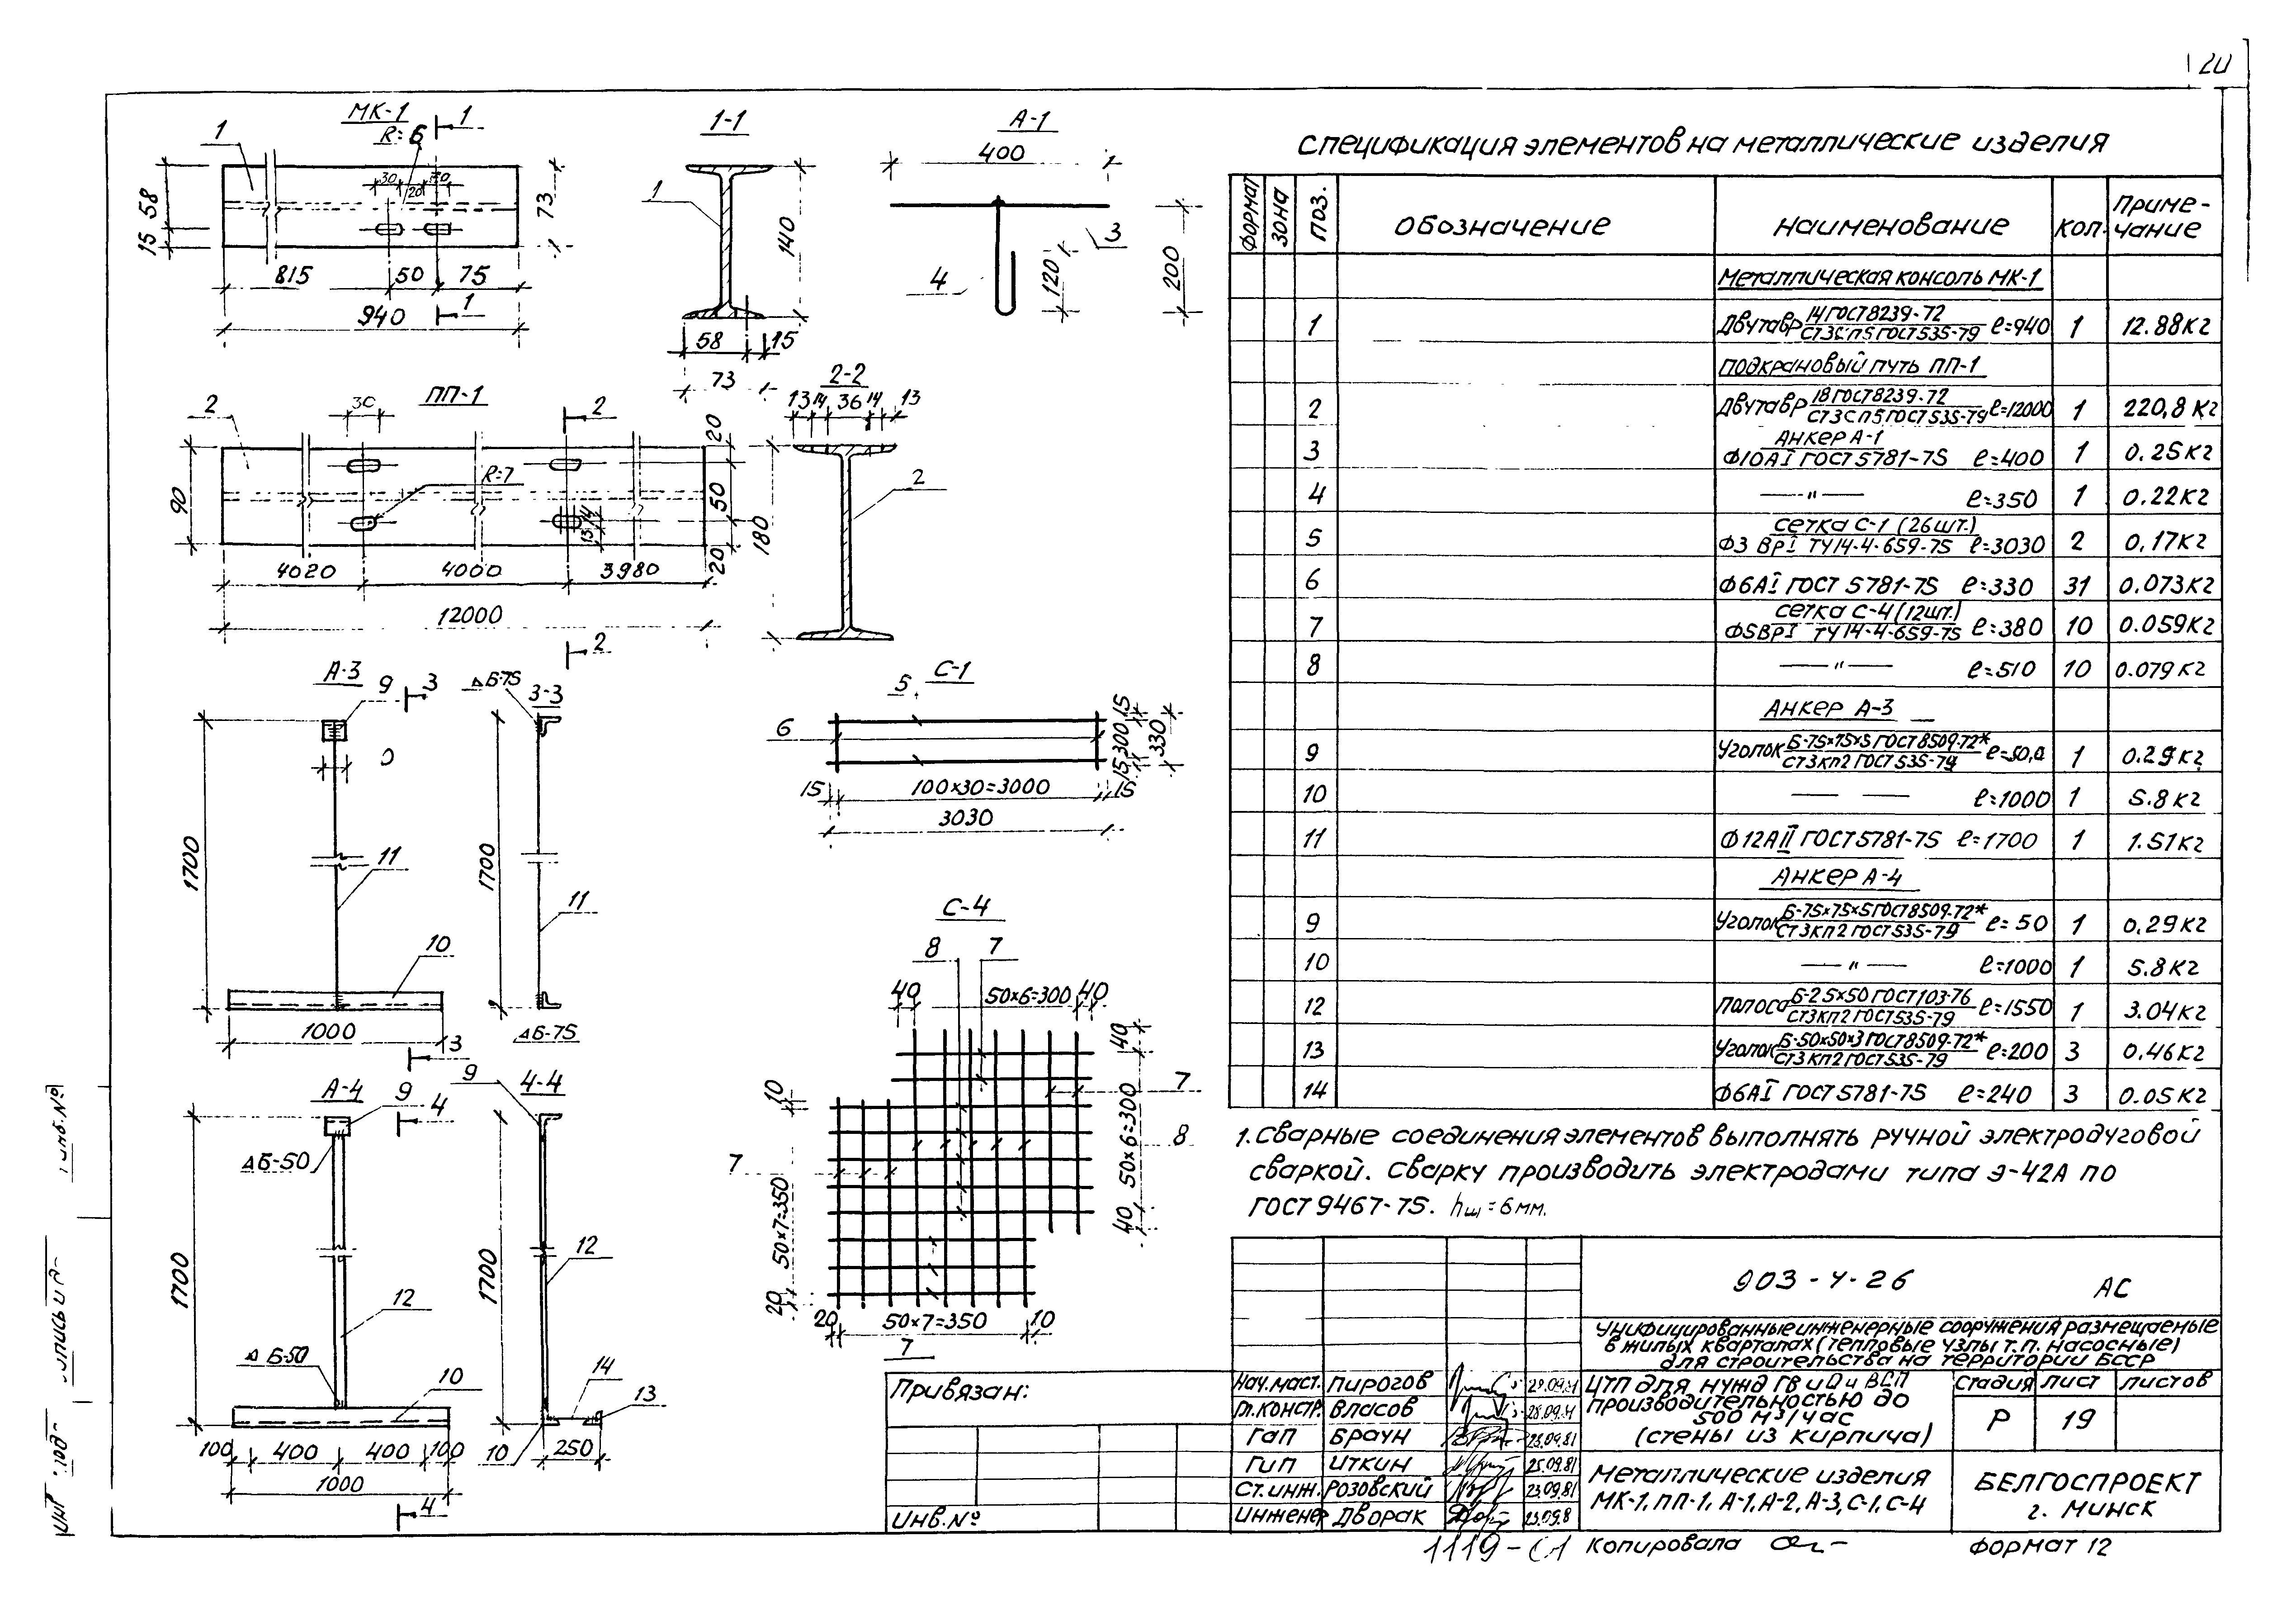 20
МК-1
R=6
1
1
30
20
30
58
15
73
815
50
75
940
1
1-1
1
140
58
15
73
А-1
400
3
4
120
200
ПП-1
2
30
2
R=7
90
20
50
20
13
14
4020
4000
3980
12000
2
2-2
13
14
36
14
13
2
180
А-3
9
3
1700
11
10
1000
3
ΔБ-75
3-3
1700
11
ΔБ-75
С-1
5
6
15
300
15
330
15
100×30=3000
15
3030
С-4
8
7
40
50×6=300
40
40
50×6=300
40
7
8
10
7
50×7=350
20
20
50×7=350
10
7
А-4
9
4
ΔБ-50
1700
12
ΔБ-50
10
100
400
400
100
1000
4
9
4-4
1700
12
14
13
10
250
Спецификация элементов на металлические изделия
Формат
Зона
Поз.
Обозначение
Наименование
Кол.
Приме-
чание
Металлическая консоль МК-1
1 Двутавр 14 ГОСТ 8239-72 / Ст3сп5 ГОСТ 535-79 ℓ=940 1 12.88кг
Подкрановый путь ПП-1
2 Двутавр 18 ГОСТ 8239-72 / Ст3сп5 ГОСТ 535-79 ℓ=12000 1 220,8кг
Анкер А-1
3 Ф10АI ГОСТ 5781-75 ℓ=400 1 0.25кг
4 —"— ℓ=350 1 0.22кг
Сетка С-1 (26шт.)
5 Ф3 ВрI ТУ14-4-659-75 ℓ=3030 2 0,17кг
6 Ф6АI ГОСТ 5781-75 ℓ=330 31 0.073кг
Сетка С-4 (12шт.)
7 Ф5ВрI ТУ14-4-659-75 ℓ=380 10 0.059кг
8 —"— ℓ=510 10 0.079кг
Анкер А-3
9 Уголок Б-75×75×5 ГОСТ 8509-72* / Ст3кп2 ГОСТ 535-79 ℓ=50,0 1 0.29кг
10 — — ℓ=1000 1 5.8кг
11 Ф12АII ГОСТ 5781-75 ℓ=1700 1 1.51кг
Анкер А-4
9 Уголок Б-75×75×5 ГОСТ 8509-72* / Ст3кп2 ГОСТ 535-79 ℓ=50 1 0.29кг
10 —"— ℓ=1000 1 5.8кг
12 Полоса Б-2 5×50 ГОСТ 103-76 / Ст3кп2 ГОСТ 535-79 ℓ=1550 1 3.04кг
13 Уголок Б-50×50×3 ГОСТ 8509-72* / Ст3кп2 ГОСТ 535-79 ℓ=200 3 0.46кг
14 Ф6АI ГОСТ 5781-75 ℓ=240 3 0.05кг
1. Сварные соединения элементов выполнять ручной электродуговой
сваркой. Сварку производить электродами типа Э-42А по
ГОСТ 9467-75. hш=6мм.
903-4-26 АС
Унифицированные инженерные сооружения размещаемые
в жилых кварталах (тепловые узлы т.п. насосные)
для строительства на территории БССР
Привязан:
Инв.№
Нач.маст. Пирогов 29.09.81
Гл.констр. Власов 28.09.81
ГАП Браун 28.09.81
ГИП Иткин 25.09.81
Ст.инж. Розовский 23.09.81
Инженер Дворак 23.09.8
ЦТП для нужд ГВ и О и ВСП
производительностью до
500 м³/час
(стены из кирпича)
Стадия
Лист
Листов
Р
19
Металлические изделия
МК-1, ПП-1, А-1, А-2, А-3, С-1, С-4
БЕЛГОСПРОЕКТ
г. Минск
1119-01
Копировала
Формат 12